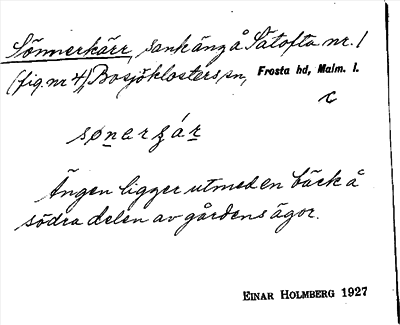 Sönnerkärr, sankäng å Sätofta nr. 1
(fig. nr 4) Bosjöklosters sn, Frosta hd, Malm. l.
c
Ängen ligger utmed en bäck å
södra delen av gårdens ägor.
EINAR HOLMBERG 1927